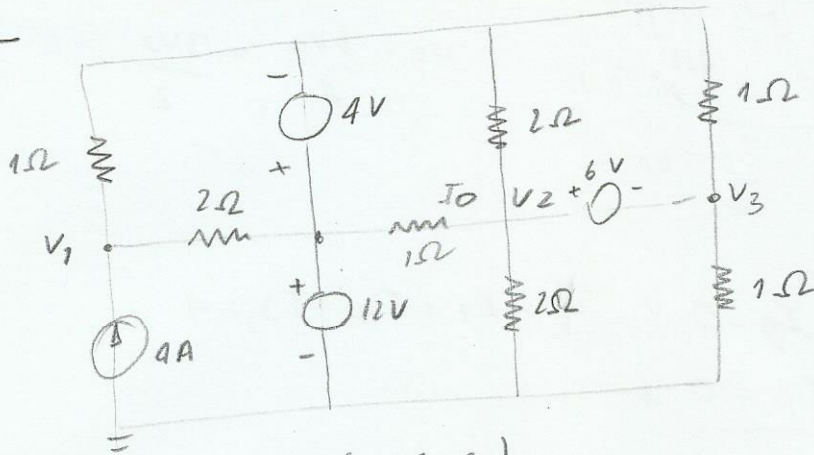 - 4V
1Ω
2Ω
1Ω
+
2Ω
I0
V2 + 6V -
V3
V1
1Ω
+ 12V
-
2Ω
1Ω
4A